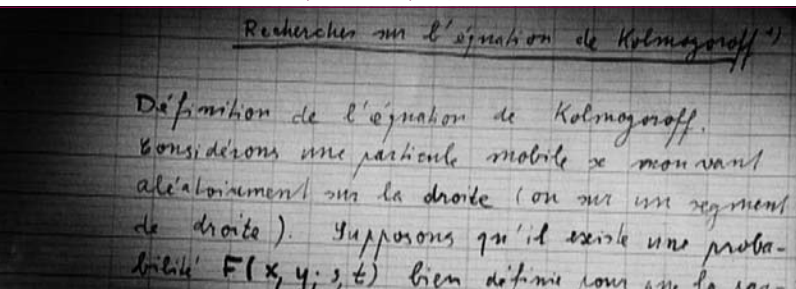 Recherches sur l'équation de Kolmogoroff 1)
Définition de l'équation de Kolmogoroff.
Considérons une particule mobile se mouvant
aléatoirement sur la droite (ou sur un segment
de droite). Supposons qu'il existe une proba-
bilité F(x, y; s, t) bien définie pour que la par-